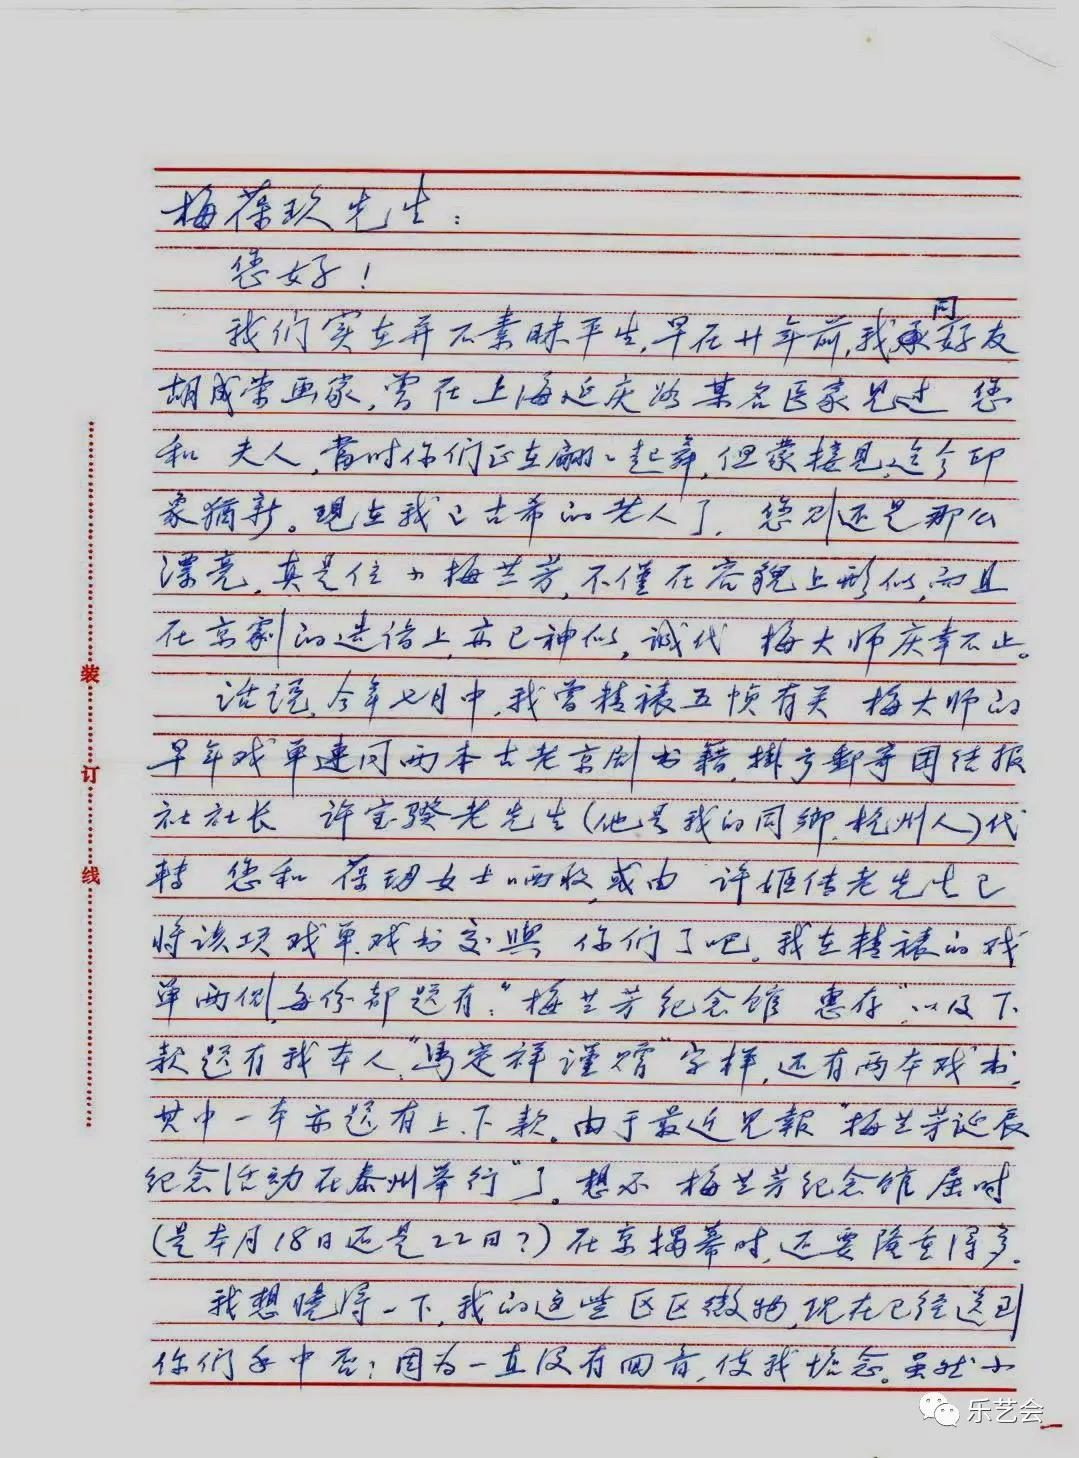 梅葆玖先生：
您好！
我们实在并不素昧平生，早在廿年前，我承同好友
胡成荣画家，曾在上海延庆路某名医家见过 您
和 夫人，当时你们正在翩翩起舞，但蒙接见，迄今印
象犹新。现在我已古希的老人了，您则还是那么
漂亮，真是位小梅兰芳，不仅在容貌上形似，而且
在京剧的造诣上，亦已神似，诚代 梅大师庆幸不止。
话说，今年七月中，我曾精裱五帧有关 梅大师的
早年戏单连同两本古老京剧书籍，挂号邮寄团结报
社社长 许宝骙老先生（他是我的同乡，杭州人）代
转 您和 葆玥女士哂收，或由 许姬传老先生已
将该项戏单、戏书交与 你们了吧。我在精裱的戏
单两侧，每份都题有：“梅兰芳纪念馆 惠存”，以及下
款题有我本人：“马定祥谨赠”字样，还有两本戏书，
其中一本亦题有上、下款。由于最近见报“梅兰芳诞辰
纪念活动在泰州举行”了。想不 梅兰芳纪念馆届时
（是本月18日还是22日？）在京揭幕时，还要隆重得多。
我想晓得一下，我的这些区区微物，现在已经送到
你们手中否；因为一直没有回音，使我惦念。虽然小
装订线
乐艺会